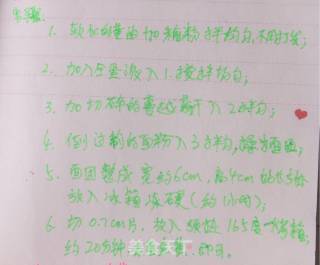 步骤:
1. 软化的黄油加糖粉拌均匀,不用打发;
2. 加入全蛋液入1.搅拌均匀;
3. 加切碎的蔓越莓干入2拌匀;
4. 倒过制的面粉入3拌匀,揉面团;
5. 面团整成宽约6cm,高4cm的长方体
放入冰箱冻硬(约1小时);
6. 切0.7cm片,放入预热165度烤箱,
约20分钟 即可。
美食天下